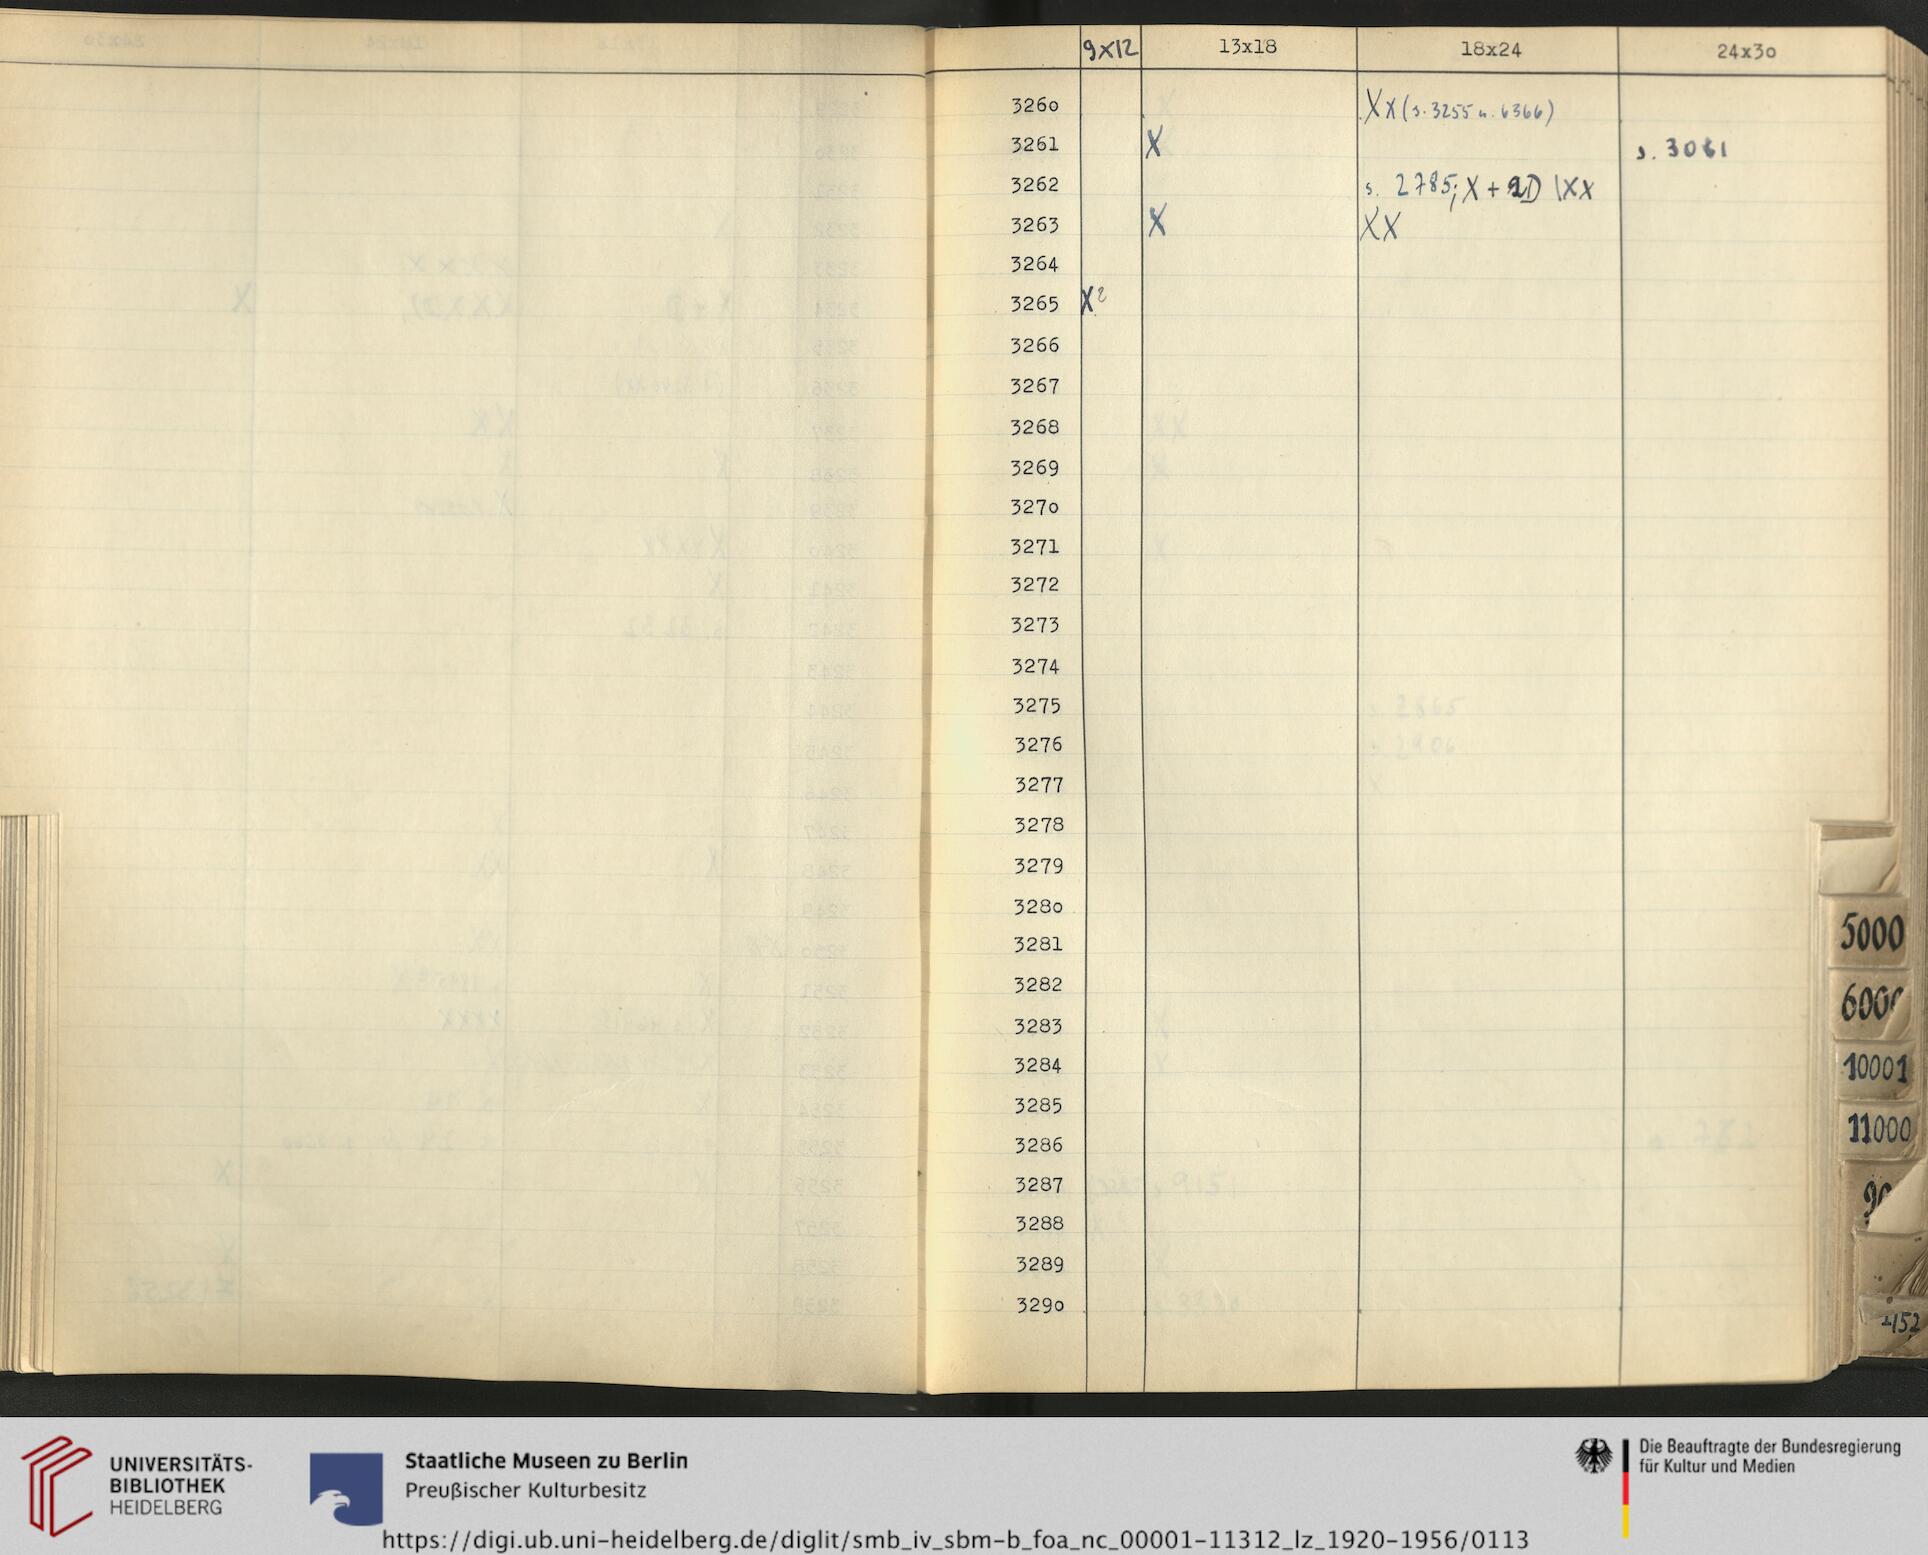 9x12 13x18 18x24 24x3o
326o Xx (s. 3255 u. 6366)
3261 X s. 3061
3262 s. 2785; X + 2D |XX
3263 X XX
3264
3265 X?
3266
3267
3268
3269
327o
3271
3272
3273
3274
3275
3276
3277
3278
3279
328o
3281
3282
3283
3284
3285
3286
3287
3288
3289
329o
5000
6000
10001
11000
UNIVERSITÄTS-
BIBLIOTHEK
HEIDELBERG
Staatliche Museen zu Berlin
Preußischer Kulturbesitz
Die Beauftragte der Bundesregierung
für Kultur und Medien
https://digi.ub.uni-heidelberg.de/diglit/smb_iv_sbm-b_foa_nc_00001-11312_lz_1920-1956/0113